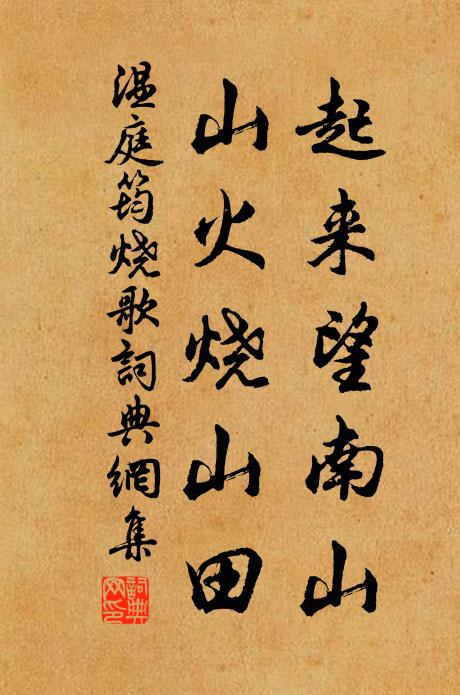 起来望南山
山火烧山田
温庭筠烧歌詞典網集
詞典
网印